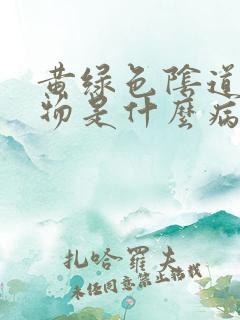 黄绿色陰道
物是什麼病
扎哈羅夫
未经同意禁止转载